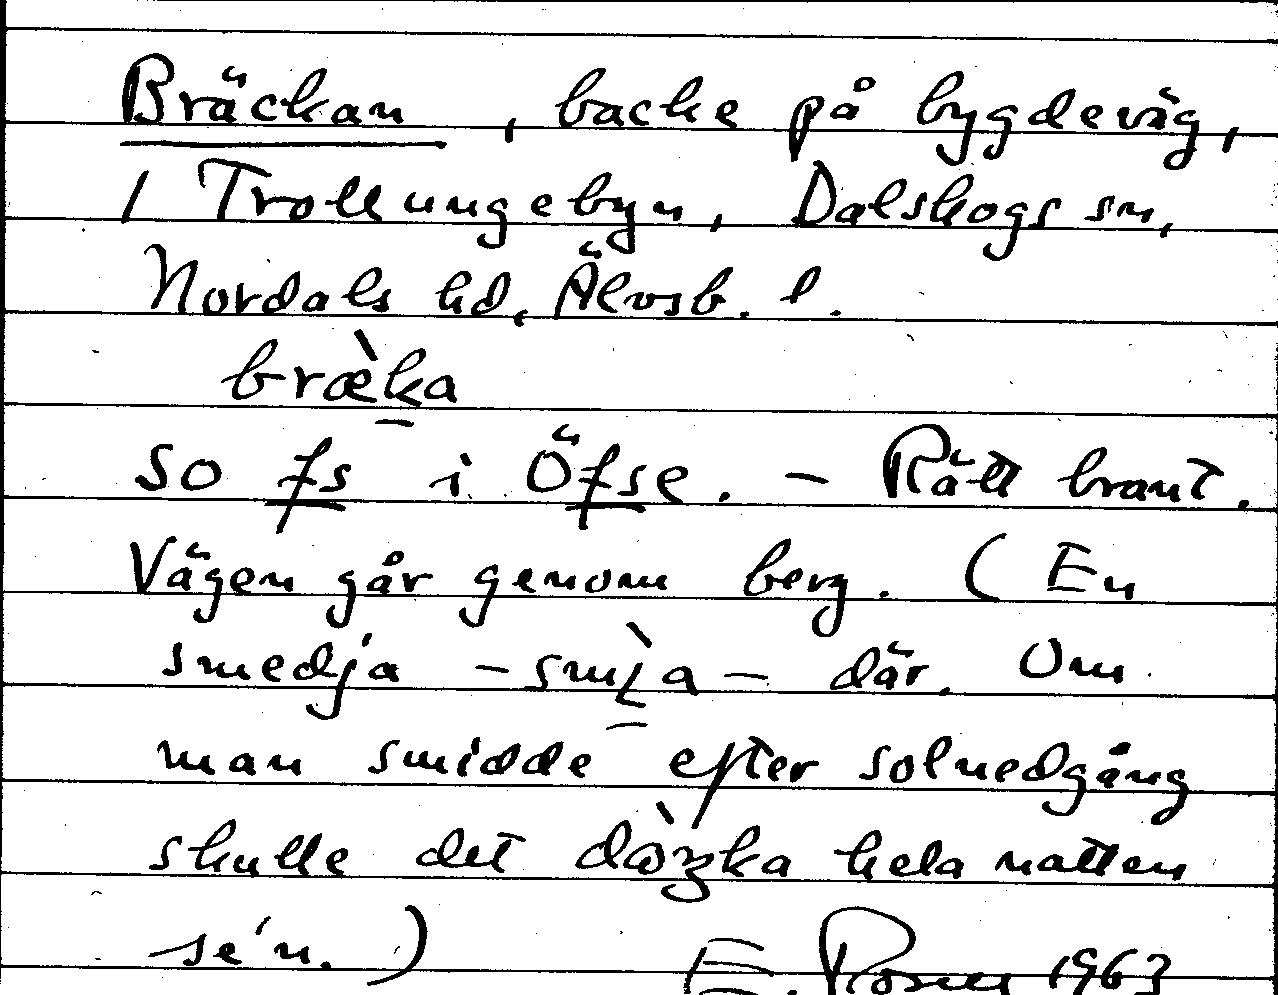 Bräckan, backe på bygdeväg,
i Trollungebyn, Dalskogs sn,
Nordals hd, Älvsb. l.
bræ̀ka
so fs i Öfse. – Rätt brant.
Vägen går genom berg. (En
smedja – smı̀a – där. Om
man smidde efter solnedgång
skulle det hela natten
se'n.) E. 1963